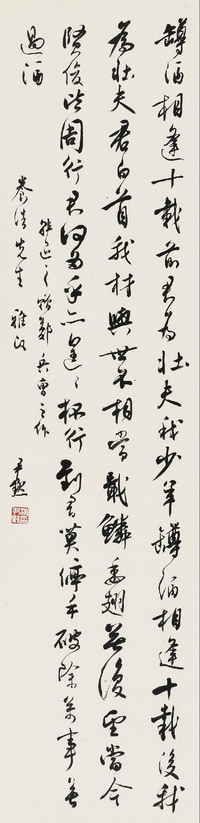 罇酒相逢十載前君為壯夫我少年罇酒相逢十載後我
為壯夫君白首我材與世不相當戢鱗委翅無復望當今
賢俊皆周行君何為乎亦遑遑杯行到君莫停手破除萬事無
過酒
韓退之贈鄭兵曹之作
養清先生 雅政
尹默